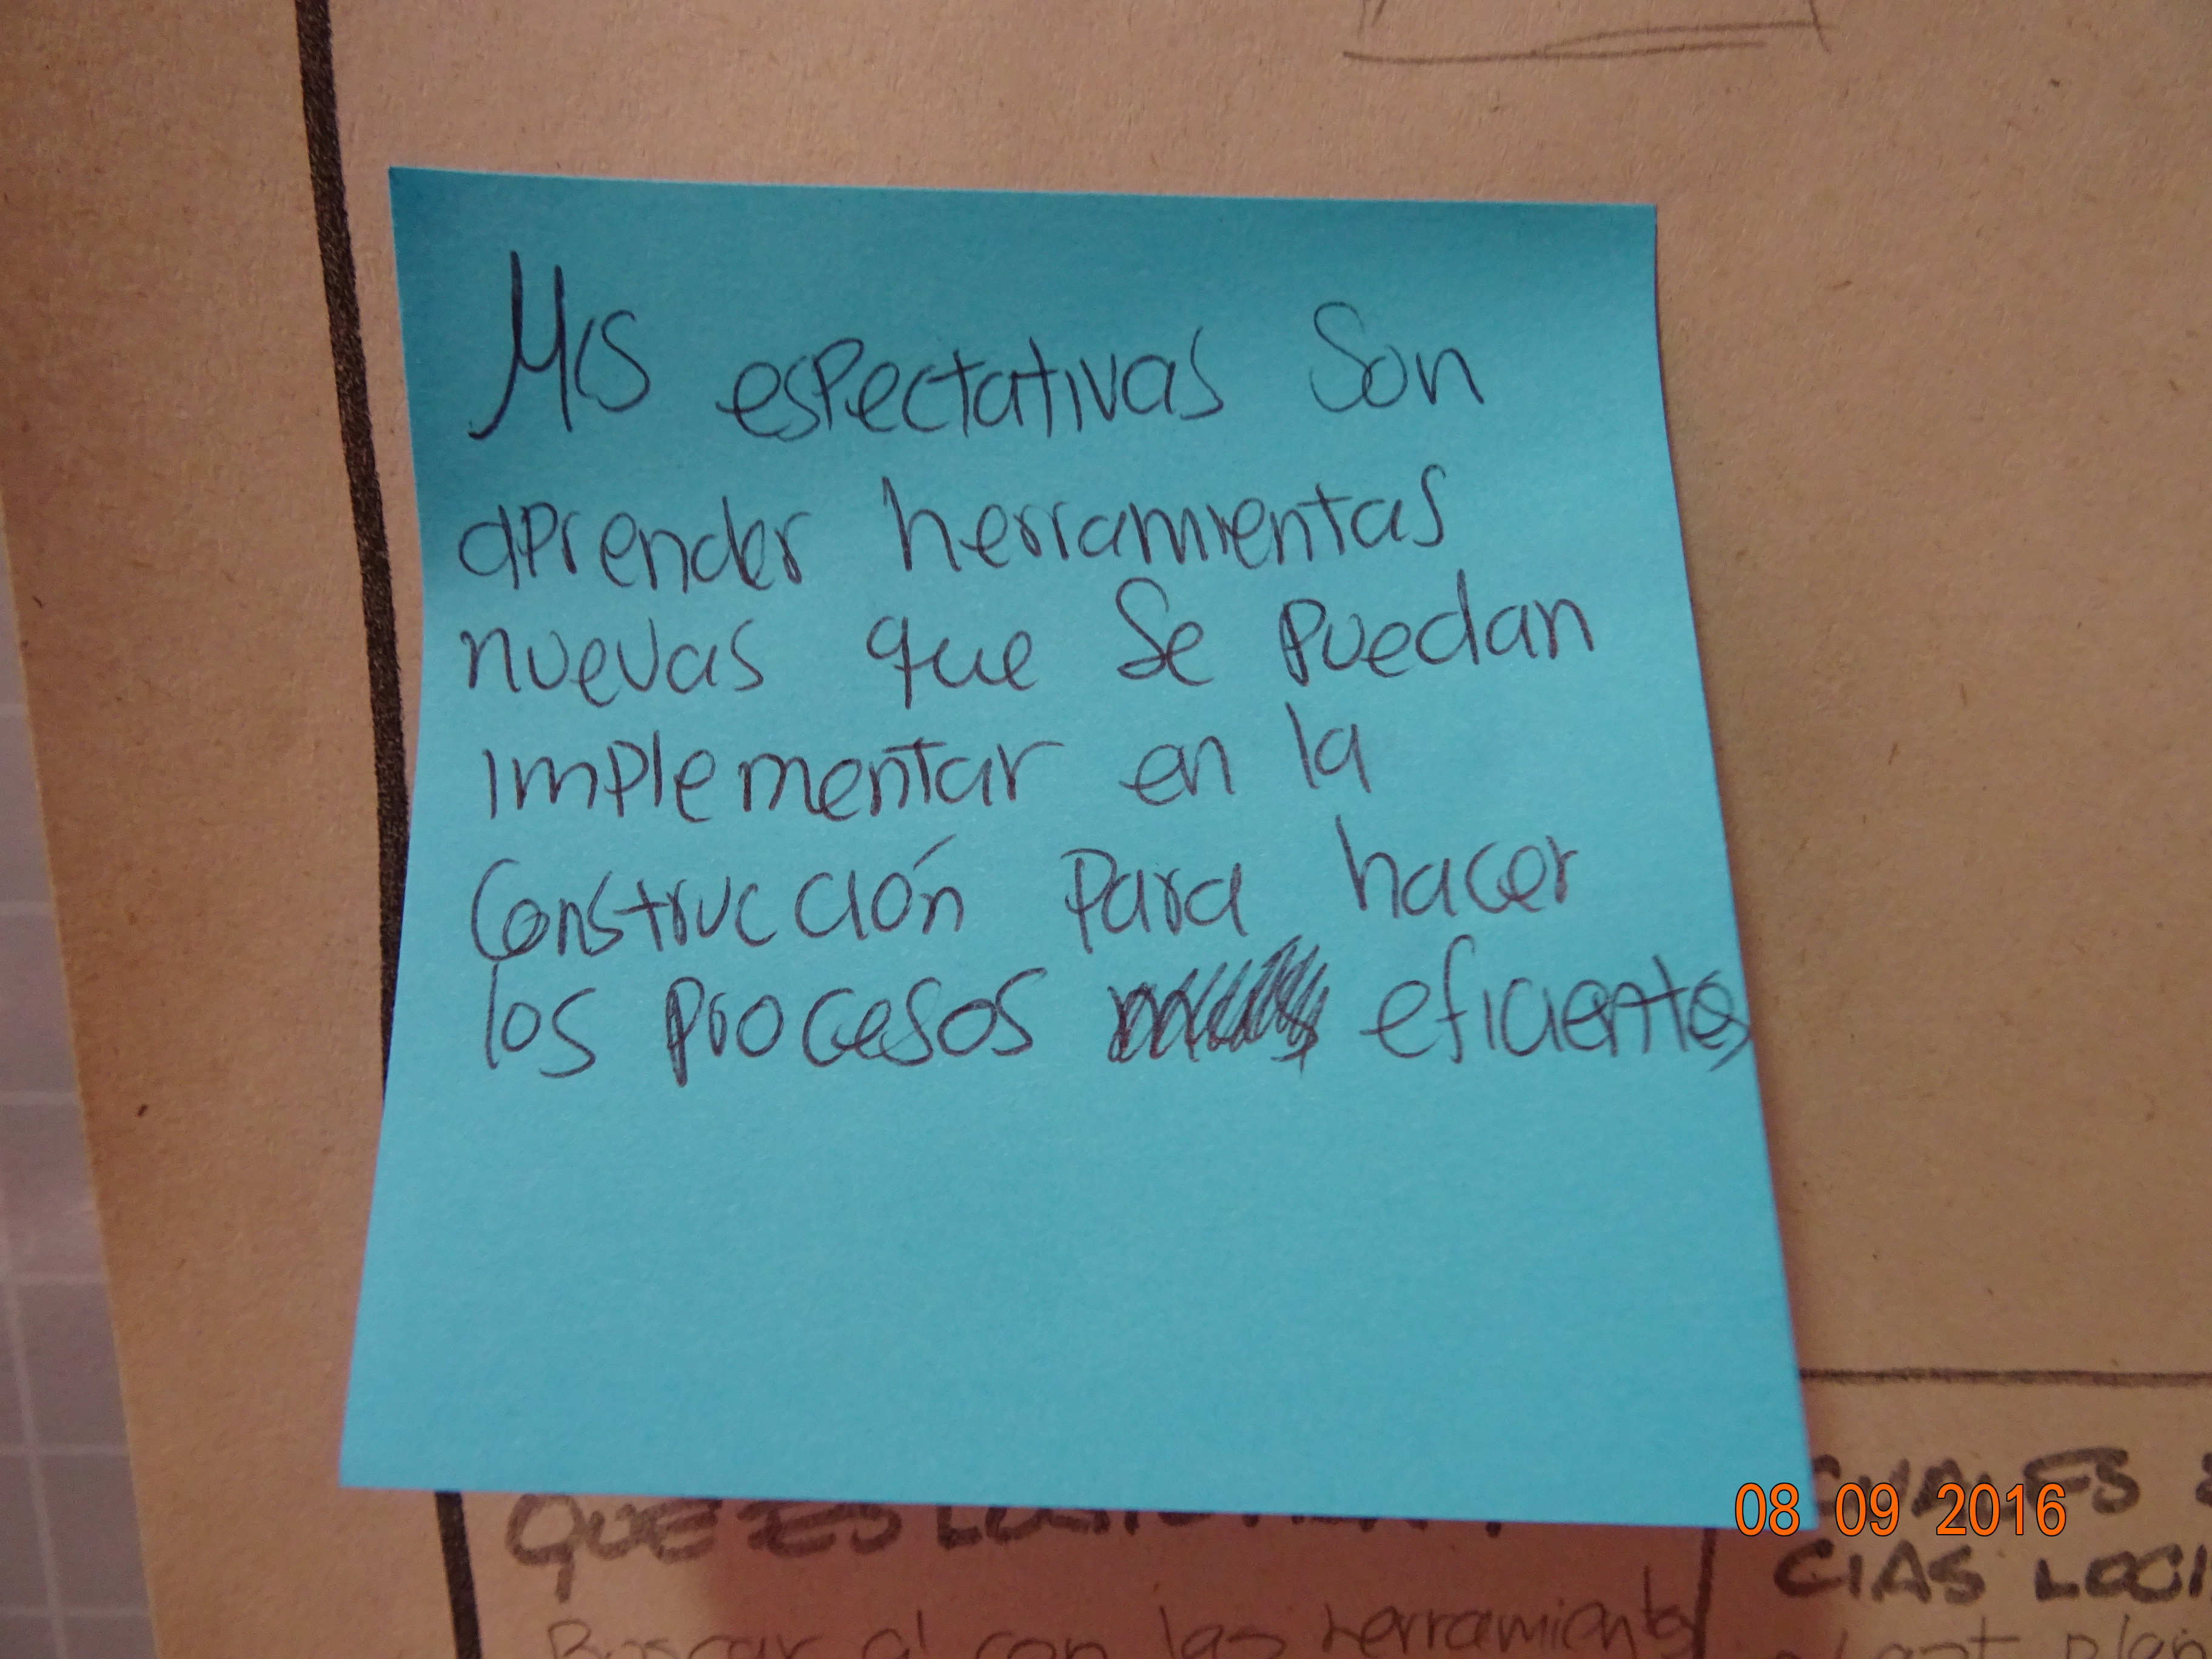 Mis espectativas son
aprender herramientas
nuevas que se puedan
implementar en la
construcción para hacer
los procesos eficientes
QUE ES
CUALES
CIAS LOGI
Buscar al con las herramienta
08 09 2016